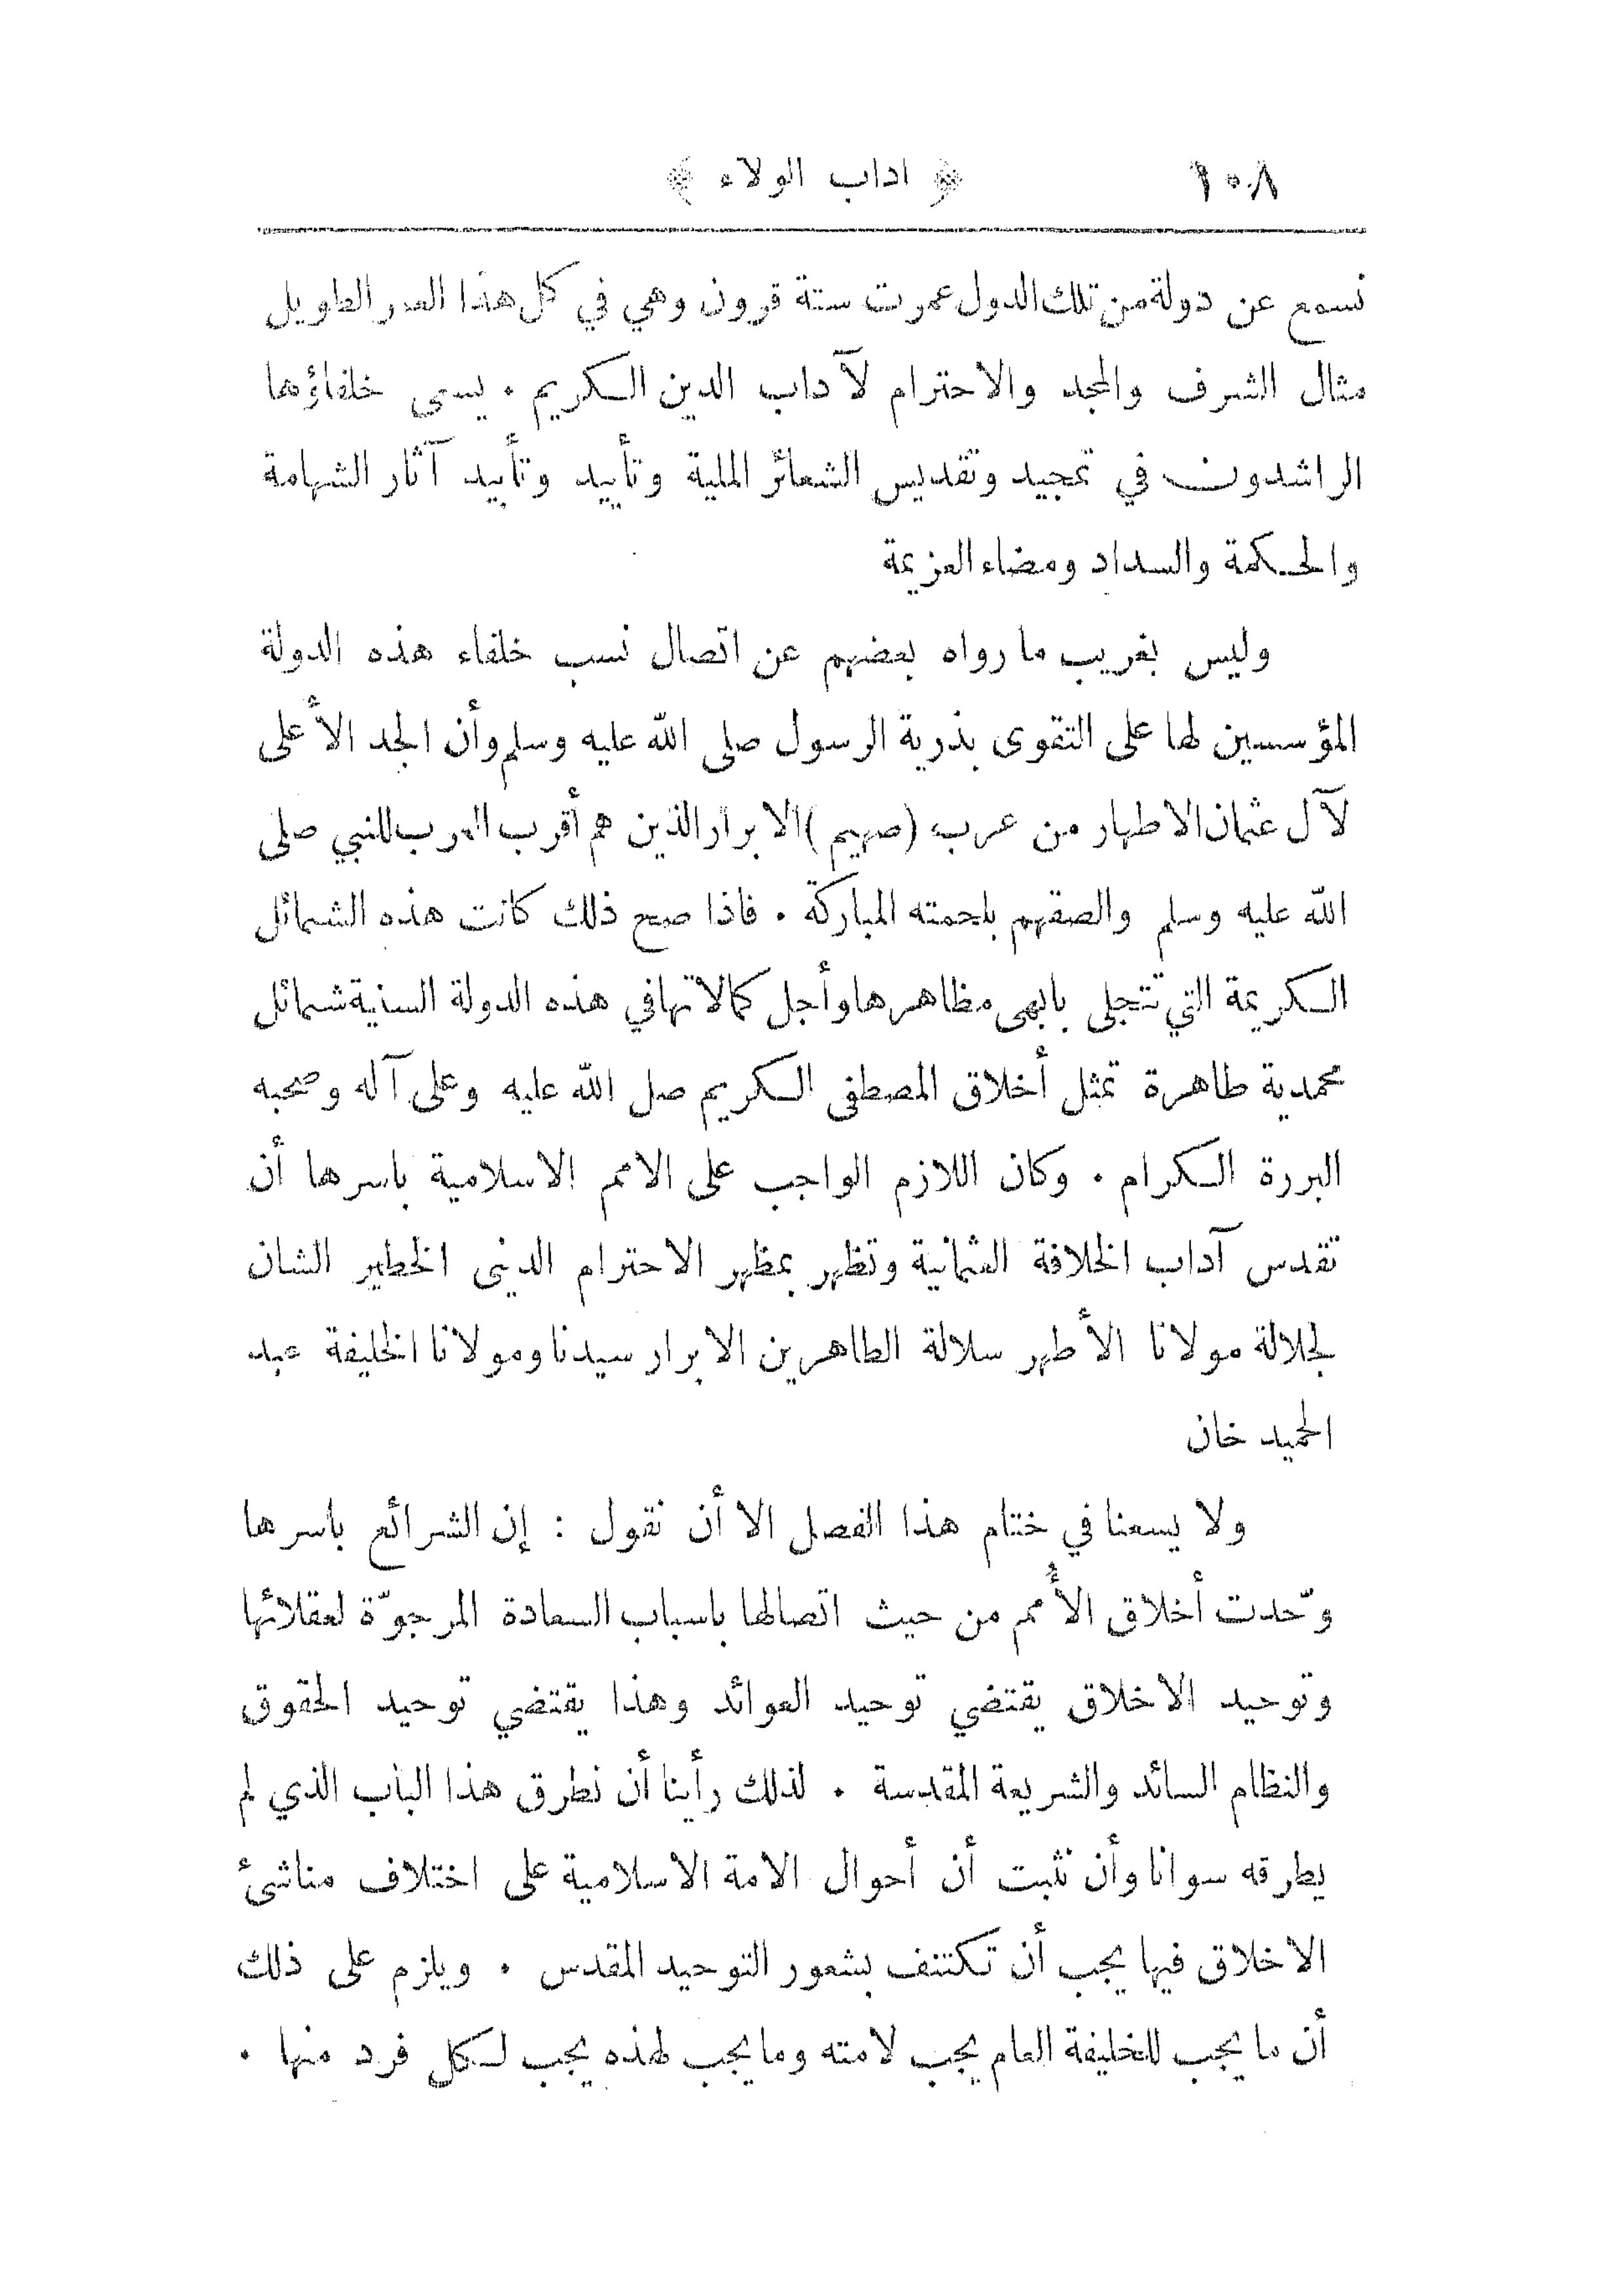 ١٠٨ ﴿ اداب الولاء ﴾
نسمع عن دولة من تلك الدول عمرت ستة قرون وهي في كل هذا العمر الطويل
مثال الشرف والمجد والاحترام لآداب الدين الكريم . يسعى خلفاؤها
الراشدون في تمجيد وتقديس الشعائر الملية وتأييد وتأبيد آثار الشهامة
والحكمة والسداد ومضاء العزيمة
وليس بغريب ما رواه بعضهم عن اتصال نسب خلفاء هذه الدولة
المؤسسين لها على التقوى بذرية الرسول صلى الله عليه وسلم وأن الجد الأعلى
لآل عثمان الاطهار من عرب (صهيم) الابرار الذين هم أقرب العرب للنبي صلى
الله عليه وسلم والصقهم بلحمته المباركة . فاذا صح ذلك كانت هذه الشمائل
الكريمة التي تتجلى بابهى مظاهرها وأجل كمالاتها في هذه الدولة السنية شمائل
محمدية طاهرة تمثل أخلاق المصطفى الكريم صل الله عليه وعلى آله وصحبه
البررة الكرام . وكان اللازم الواجب على الامم الاسلامية باسرها أن
تقدس آداب الخلافة العثمانية وتظهر بمظهر الاحترام الديني الخطير الشان
لجلالة مولانا الأطهر سلالة الطاهرين الابرار سيدنا ومولانا الخليفة عبد
الحميد خان
ولا يسعنا في ختام هذا الفصل الا أن نقول : إن الشرائع باسرها
وحّدت أخلاق الأُمم من حيث اتصالها باسباب السعادة المرجوّة لعقلائها
وتوحيد الاخلاق يقتضي توحيد العوائد وهذا يقتضي توحيد الحقوق
والنظام السائد والشريعة المقدسة . لذلك رأينا أن نطرق هذا الباب الذي لم
يطرقه سوانا وأن نثبت أن أحوال الامة الاسلامية على اختلاف مناشئ
الاخلاق فيها يجب أن تكتنف بشعور التوحيد المقدس . ويلزم على ذلك
أن ما يجب للخليفة العام يجب لامته وما يجب لهذه يجب لكل فرد منها .